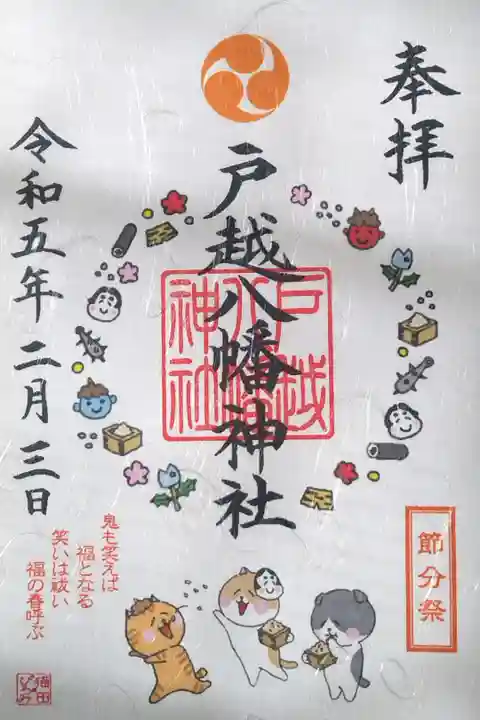 奉拝
戸越八幡神社
戸越
八幡
神社
令和五年二月三日
節分祭
鬼も笑えば
福となる
笑いは祓い
福の春呼ぶ